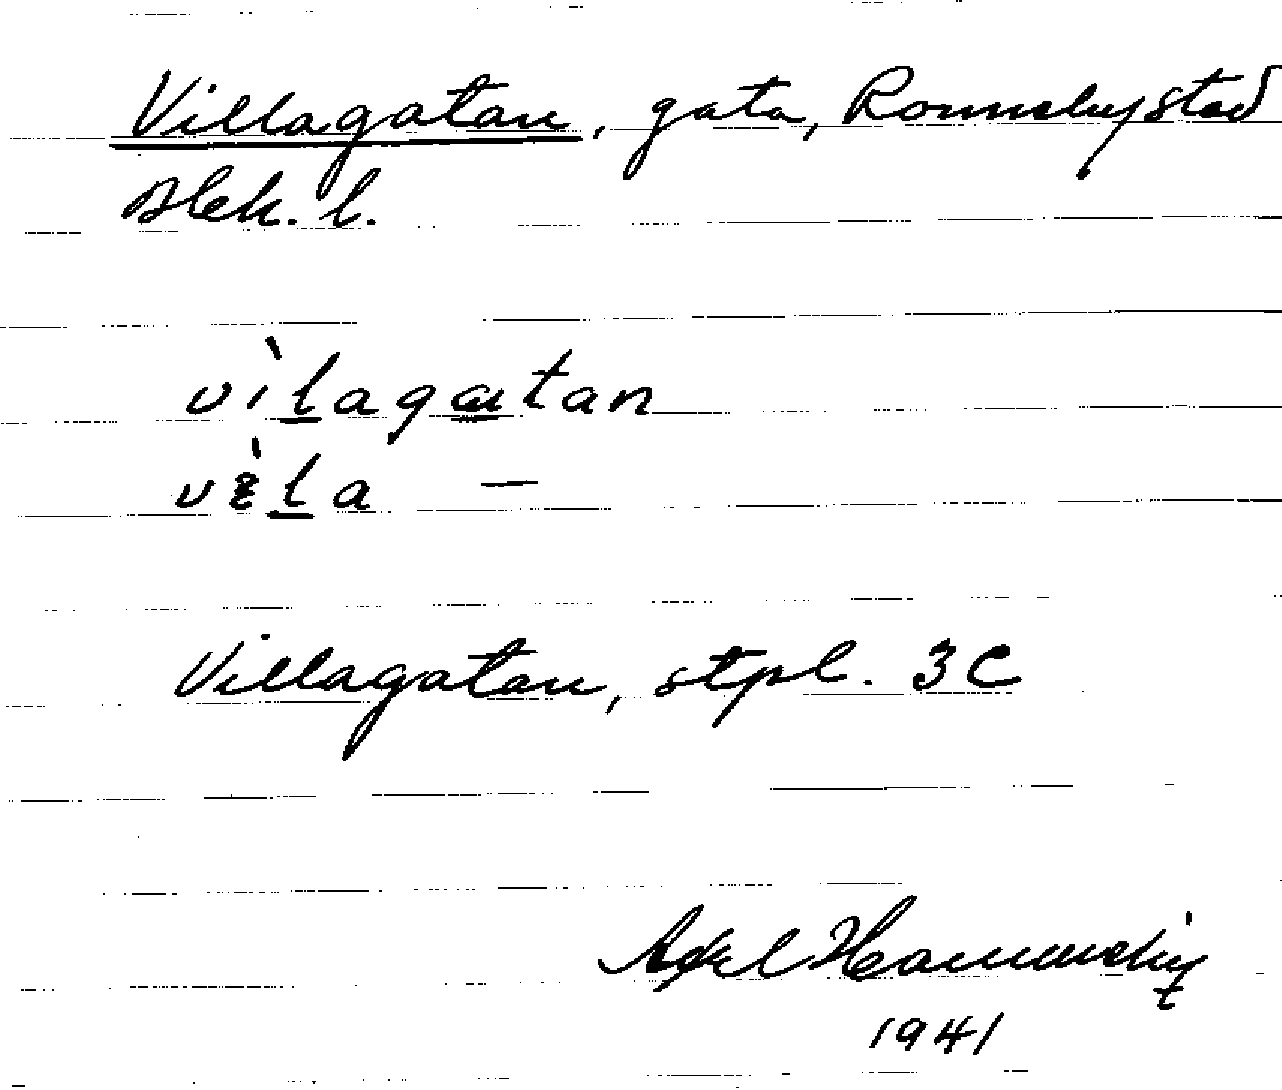 Villagatan, gata, Ronneby stad
Blek. l.
vìlagatan
vèla —
Villagatan, stpl. 3C
Axel
1941